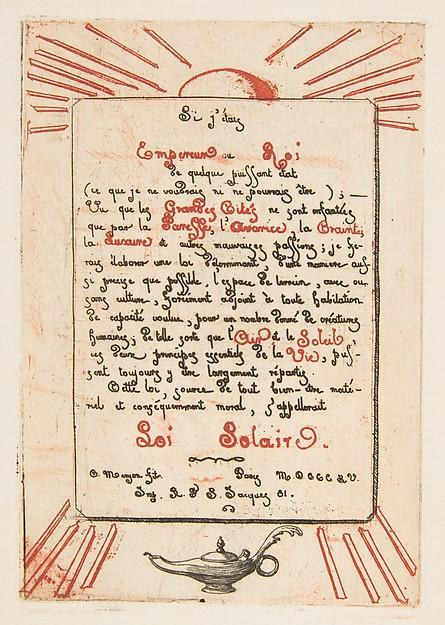 Si j'étais
Empereur ou Roi
de quelque puissant état
(ce que je ne voudrais ni ne pourrais être) ; —
Vu que les Grandes Cités ne sont enfantées
que par la Paresse, l'Avarice, la Crainte,
la Luxure et autres mauvaises passions ; je fe-
rais élaborer une loi déterminant, d'une manière aus-
si précise que possible, l'espace de terrain, avec ou
sans culture, forcément adjoint à toute habitation
de capacité voulue, pour un nombre donné de créatures
humaines ; de telle sorte que l'Air et le Soleil,
ces deux principes essentiels de la Vie, puis-
sent toujours y être largement répartis.
Cette loi, source de tout bien-être maté-
riel et conséquemment moral, s'appellerait
Loi Solaire.
C. Meryon fit. Paris MDCCCLV.
Imp. R. N. S. Jacques 81.